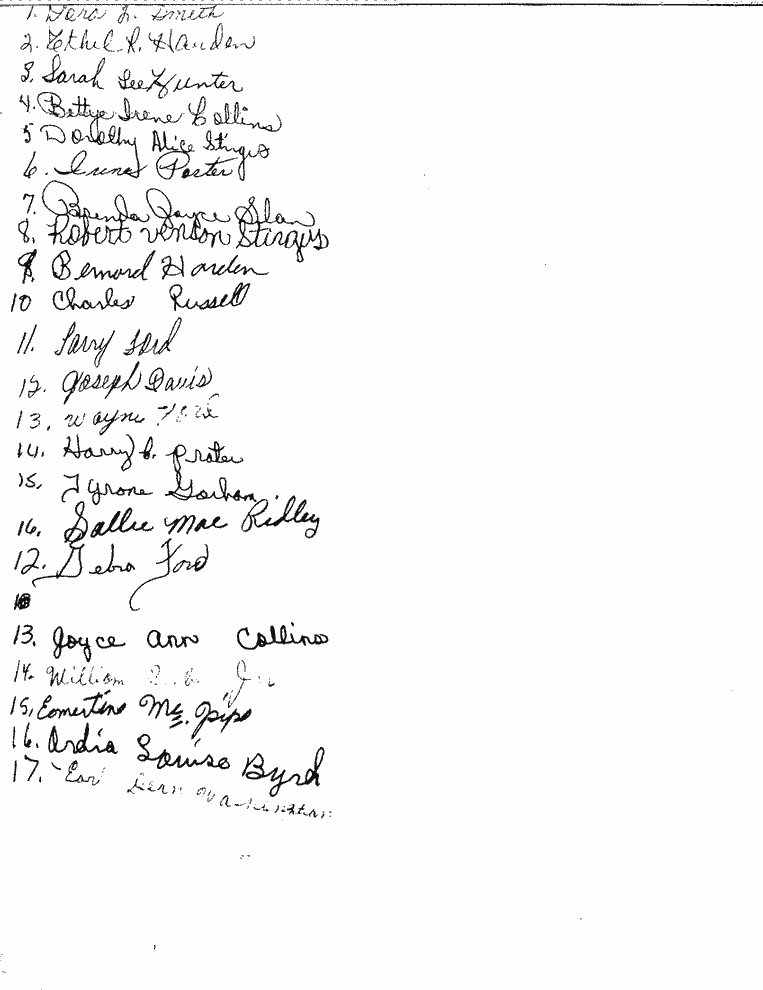 1. Dora L. Smith
2. Ethel R. Harden
3. Sarah Lee Hunter
4. Bettye Irene Collins
5 Dorothy Alice Stingus
6. Porter
7. Brenda Joyce
8. Robert Venson Stingus
9. Bernard Harden
10 Charles Russell
11. Larry Ford
12. Joseph Davis
13. Wayne York
14. Harry C. Prater
15. Tyrone Gorham
16. Sallie Mae Ridley
12. Debra Ford
13. Joyce Ann Collins
14. William
15, Mc.
16. Ardia Louise Byrd
17. Dean Washington